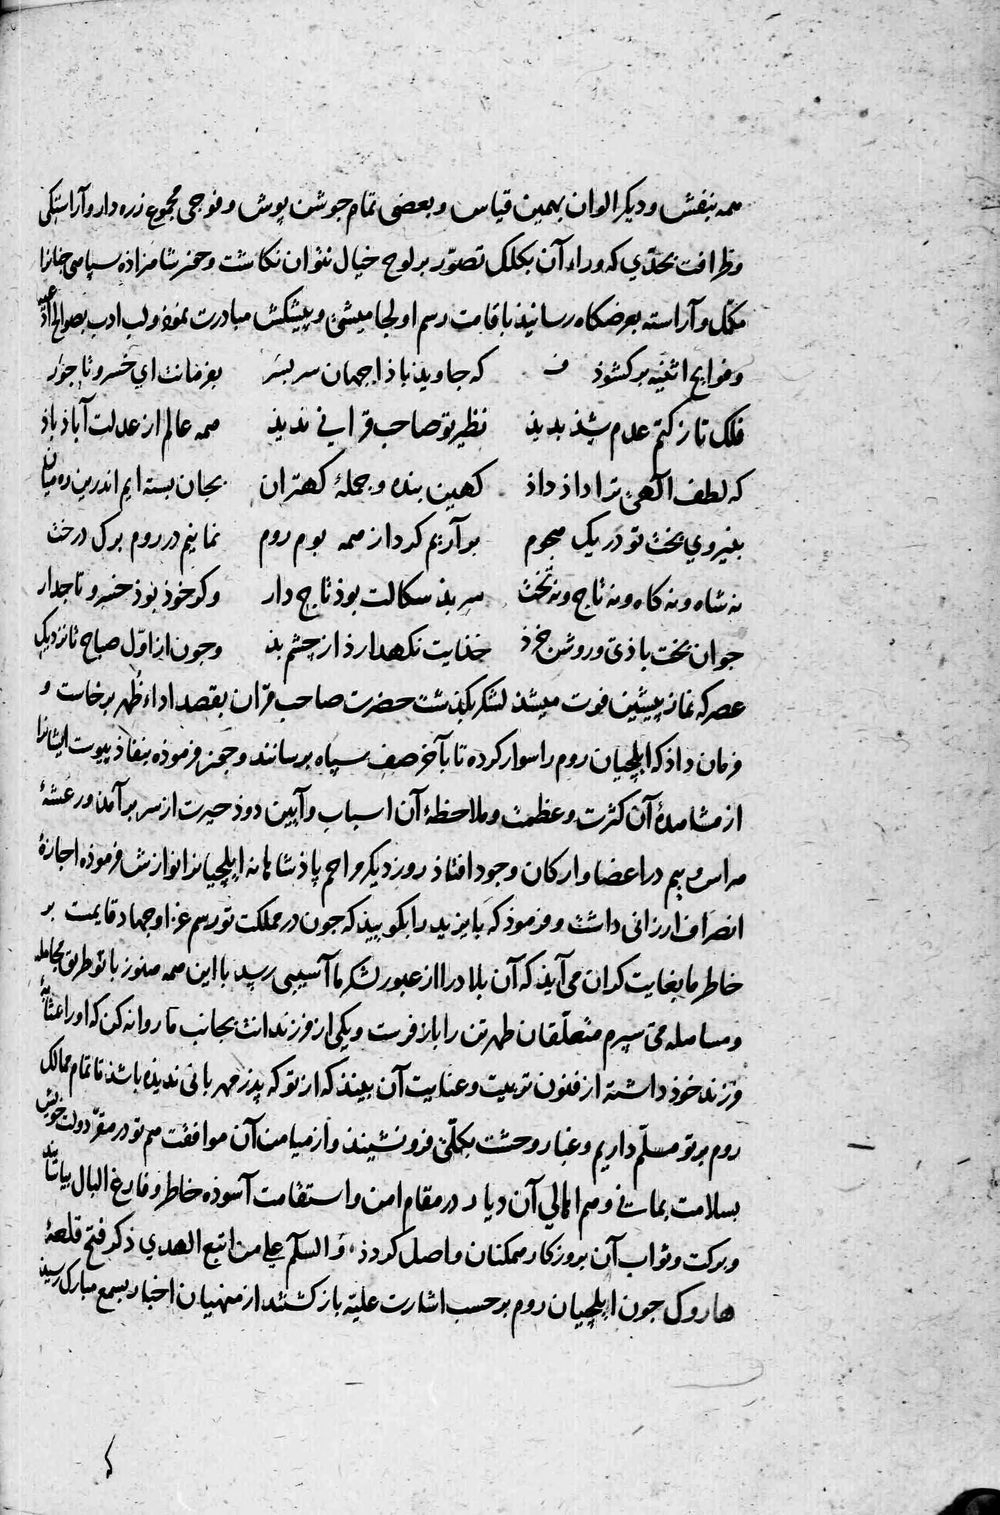 همه بنفش و دیکر الوان بهمین قیاس و بعضی تمام جوشن پوش و فوجی مجموع زره دار و آراستکی
و ظرافت بحدّی که وراء آن بکلک تصوّر بر لوح خیال نتوان نکاشت و حون شاهزاده سپاهی چنانرا
مکمّل و آراسته بعرضکاه رسانید باقامت رسم اولجامیشی و پیشکش مبادرت نمود و لب ادب بصوالح ادعیه
و فوایح اثنیه برکشود که جاوید باذا جهان سر بسر بفرمانت ای خسرو تاجور
فلک تا ز کتم عدم شد بدید نظیر تو صاحب قرانی ندید همه عالم از عدلت آباذ باذ
که لطف الهی ترا داذ داذ کهین بنده و جملۀ کهتران بجان بسته ایم اندرین ره میان
بنیروی بخت تو در یک هجوم برآریم کرد از همه بوم روم نمانیم در روم برک درخت
نه شاه و نه کاه و نه تاج و نه تخت سر بد سکالت بوذ تاج دار وکر خوذ بوذ خسرو تاجدار
جوان بخت باذی و روشن خرذ خذایت نکهدارذ از چشم بذ وجون از اوّل صباح تا نزدیک
عصر که نماز پیشین فوت میشد لشکر بکذشت حضرت صاحب قران بقصد اداء ظهر برخاست و
فرمان داذ که ایلچیان روم را سوار کرده تا بآخر صف سپاه برسانند وجون فرموذه بنفاذ پیوست ایشانرا
از مشاهدۀ آن کثرت و عظمت و ملاحظۀ آن اسباب و آیین دوذ حیرت از سر برآمد و رعشۀ
هراس و بیم در اعضا و ارکان وجود افتاذ روز دیکر مراحم پاذشاهانه ایلچیانرا نوازش فرموذه اجازۀ
انصراف ارزانی داشت و فرموذ که بایزید را بکویید که جون در مملکت تو رسم غزا و جهاد قایمت بر
خاطر ما بغایت کران می آید که آن بلاد را از عبور لشکر ما آسیبی رسد با این همه هنوز با تو طریق مجامله
و مساهله می سپرم متعلّقان طهرتن را باز فرست و یکی از فرزندانت بجانب ما روانه کن که او را بمثابۀ
فرزند خوذ داشته از فنون تربیت و عنایت آن بیند که از تو که پدرِ مهربانی ندیده باشد تا تمام ممالک
روم بر تو مسلّم داریم و غبار وحشت بکلّی فرو نشیند و از میامن آن موافقت هم تو در مقرّ دولت خویش
بسلامت بمانی و هم اهالی آن دیار در مقام امن و استقامت آسوذه خاطر و فارغ البال بیاسایند
و برکت و ثواب آن بروزکار همکنان واصل کردذ والسّلم علی من اتبع الهدی ذکر فتح قلعۀ
هاروک جون ایلچیان روم بر حسب اشارت علیّه بازکشتند از منهیان اخبار بسمع مبارک رسید